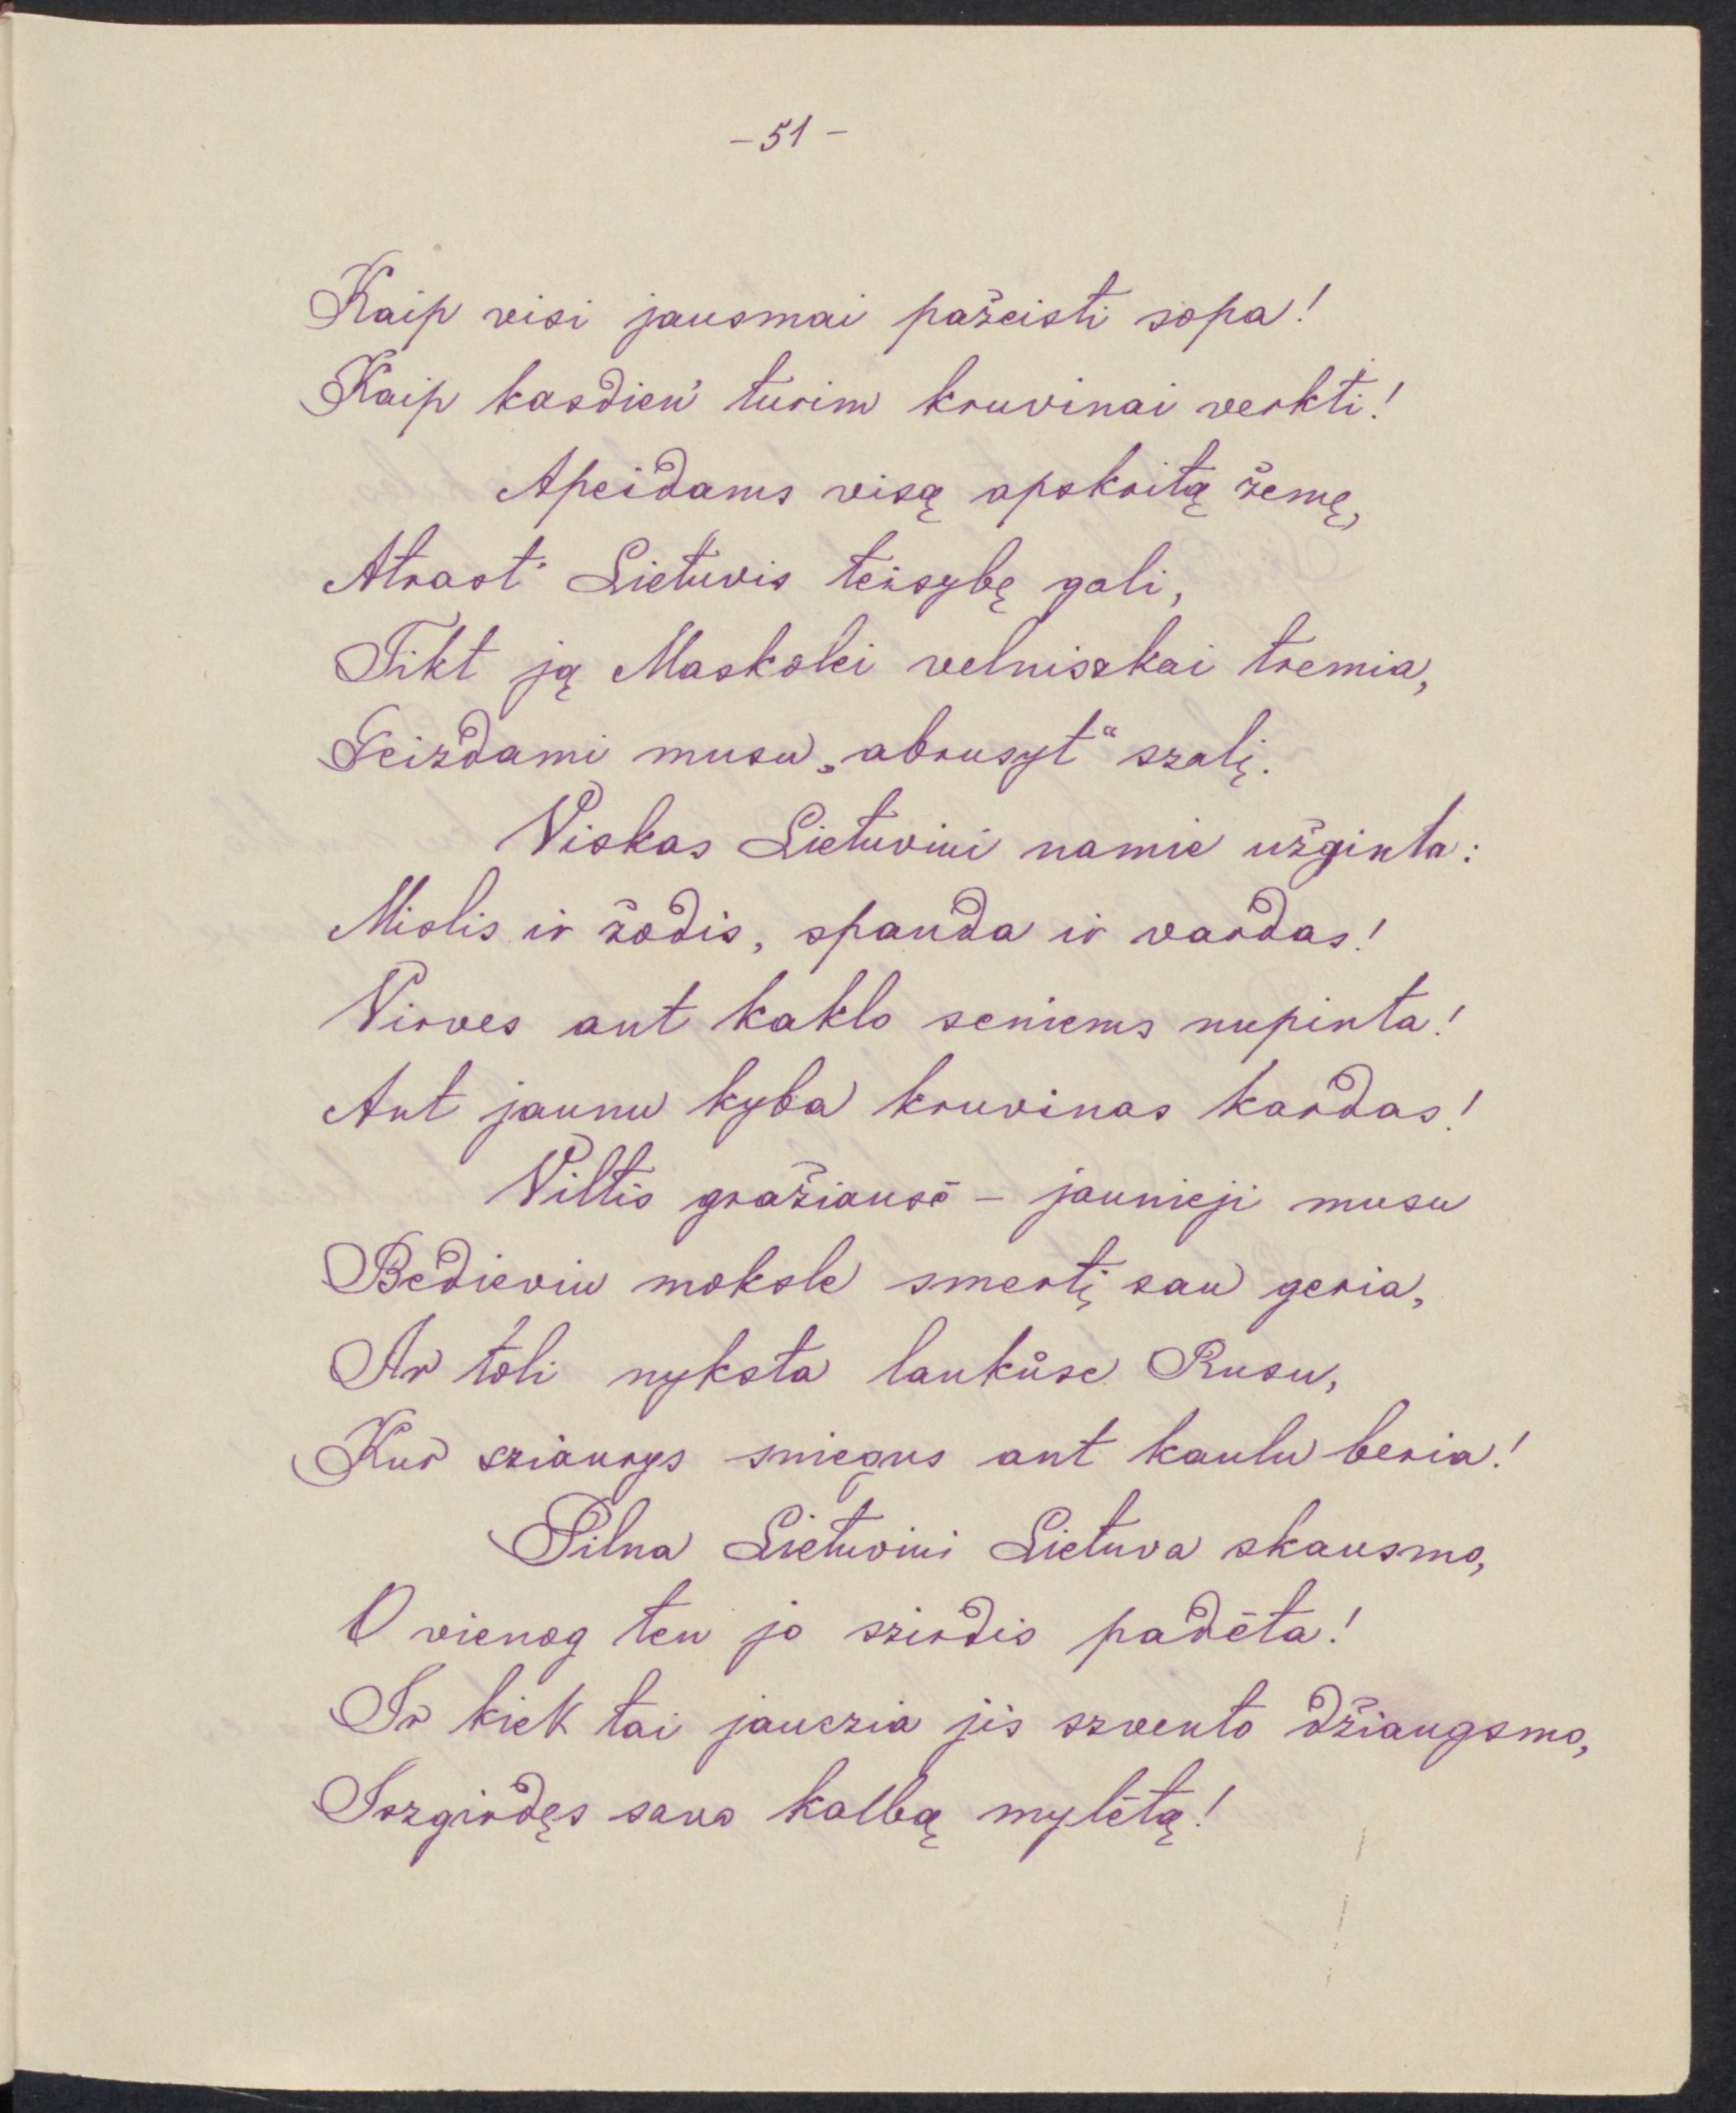 - 51 -
Kaip visi jausmai pažeisti sopa!
Kaip kasdien' turim kruvinai verkti!
Apeidams visą apskritą žemę,
Atrast' Lietuvis teisybę gali,
Tikt ją Maskolei velniszkai tremia,
Geizdami musu „abrusyt“ szalį.
Viskas Lietuviui namie užginta:
Mislis ir žodis, spauda ir vardas!
Virves ant kaklo seniems nupinta!
Ant jaunu kyba kruvinas kardas!
Viltis gražiausė – jaunieji musu
Bedieviu moksle smertį sau geria,
Ar toli nyksta laukůse Rusu,
Kur sziaurys sniegus ant kaulu beria!
Pilna Lietuviui Lietuva skausmo,
O vienog ten jo szirdis padėta!
Ir kiek tai jauczia jis szvento džiaugsmo,
Iszgirdęs savo kalbą mylėtą!